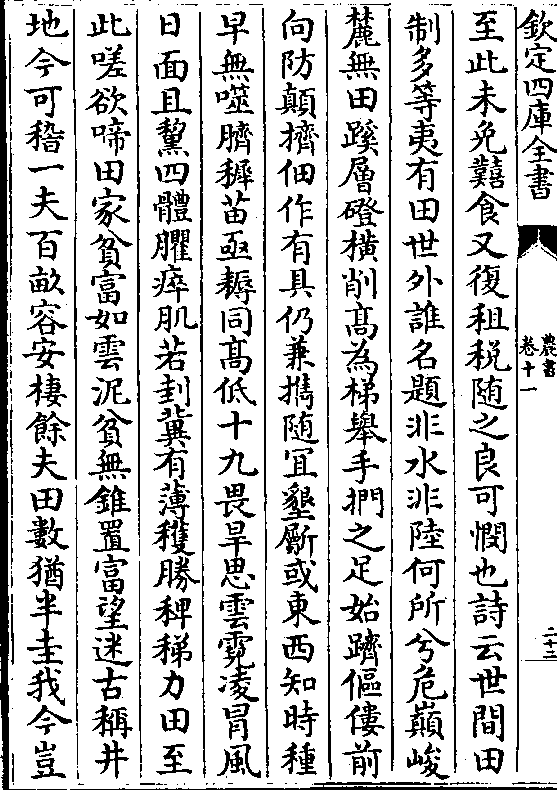 欽定四庫全書
農書
卷十一
二十三
至此未免囏食又復租稅随之良可憫也詩云世間田
制多等夷有田世外誰名題非水非陸何所兮危巔峻
麓無田蹊層磴橫削髙為梯舉手捫之足始躋傴僂前
向防顛擠佃作有具仍兼擕随宜墾斸或東西知時種
早無噬臍穉苗亟耨同髙低十九畏旱思雲霓凌冒風
日面且黧四體臞瘁肌若刲冀有薄穫勝稗稊力田至
此嗟欲啼田家貧富如雲泥貧無錐置富望迷古稱井
地今可稽一夫百畝容安棲餘夫田數猶半圭我今豈